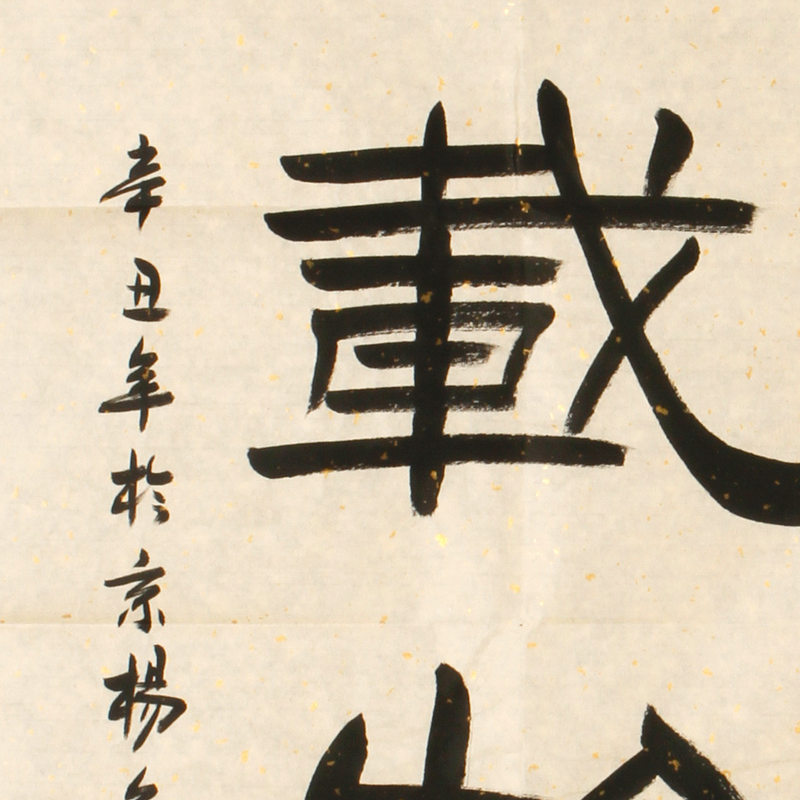 載
辛丑年於京楊